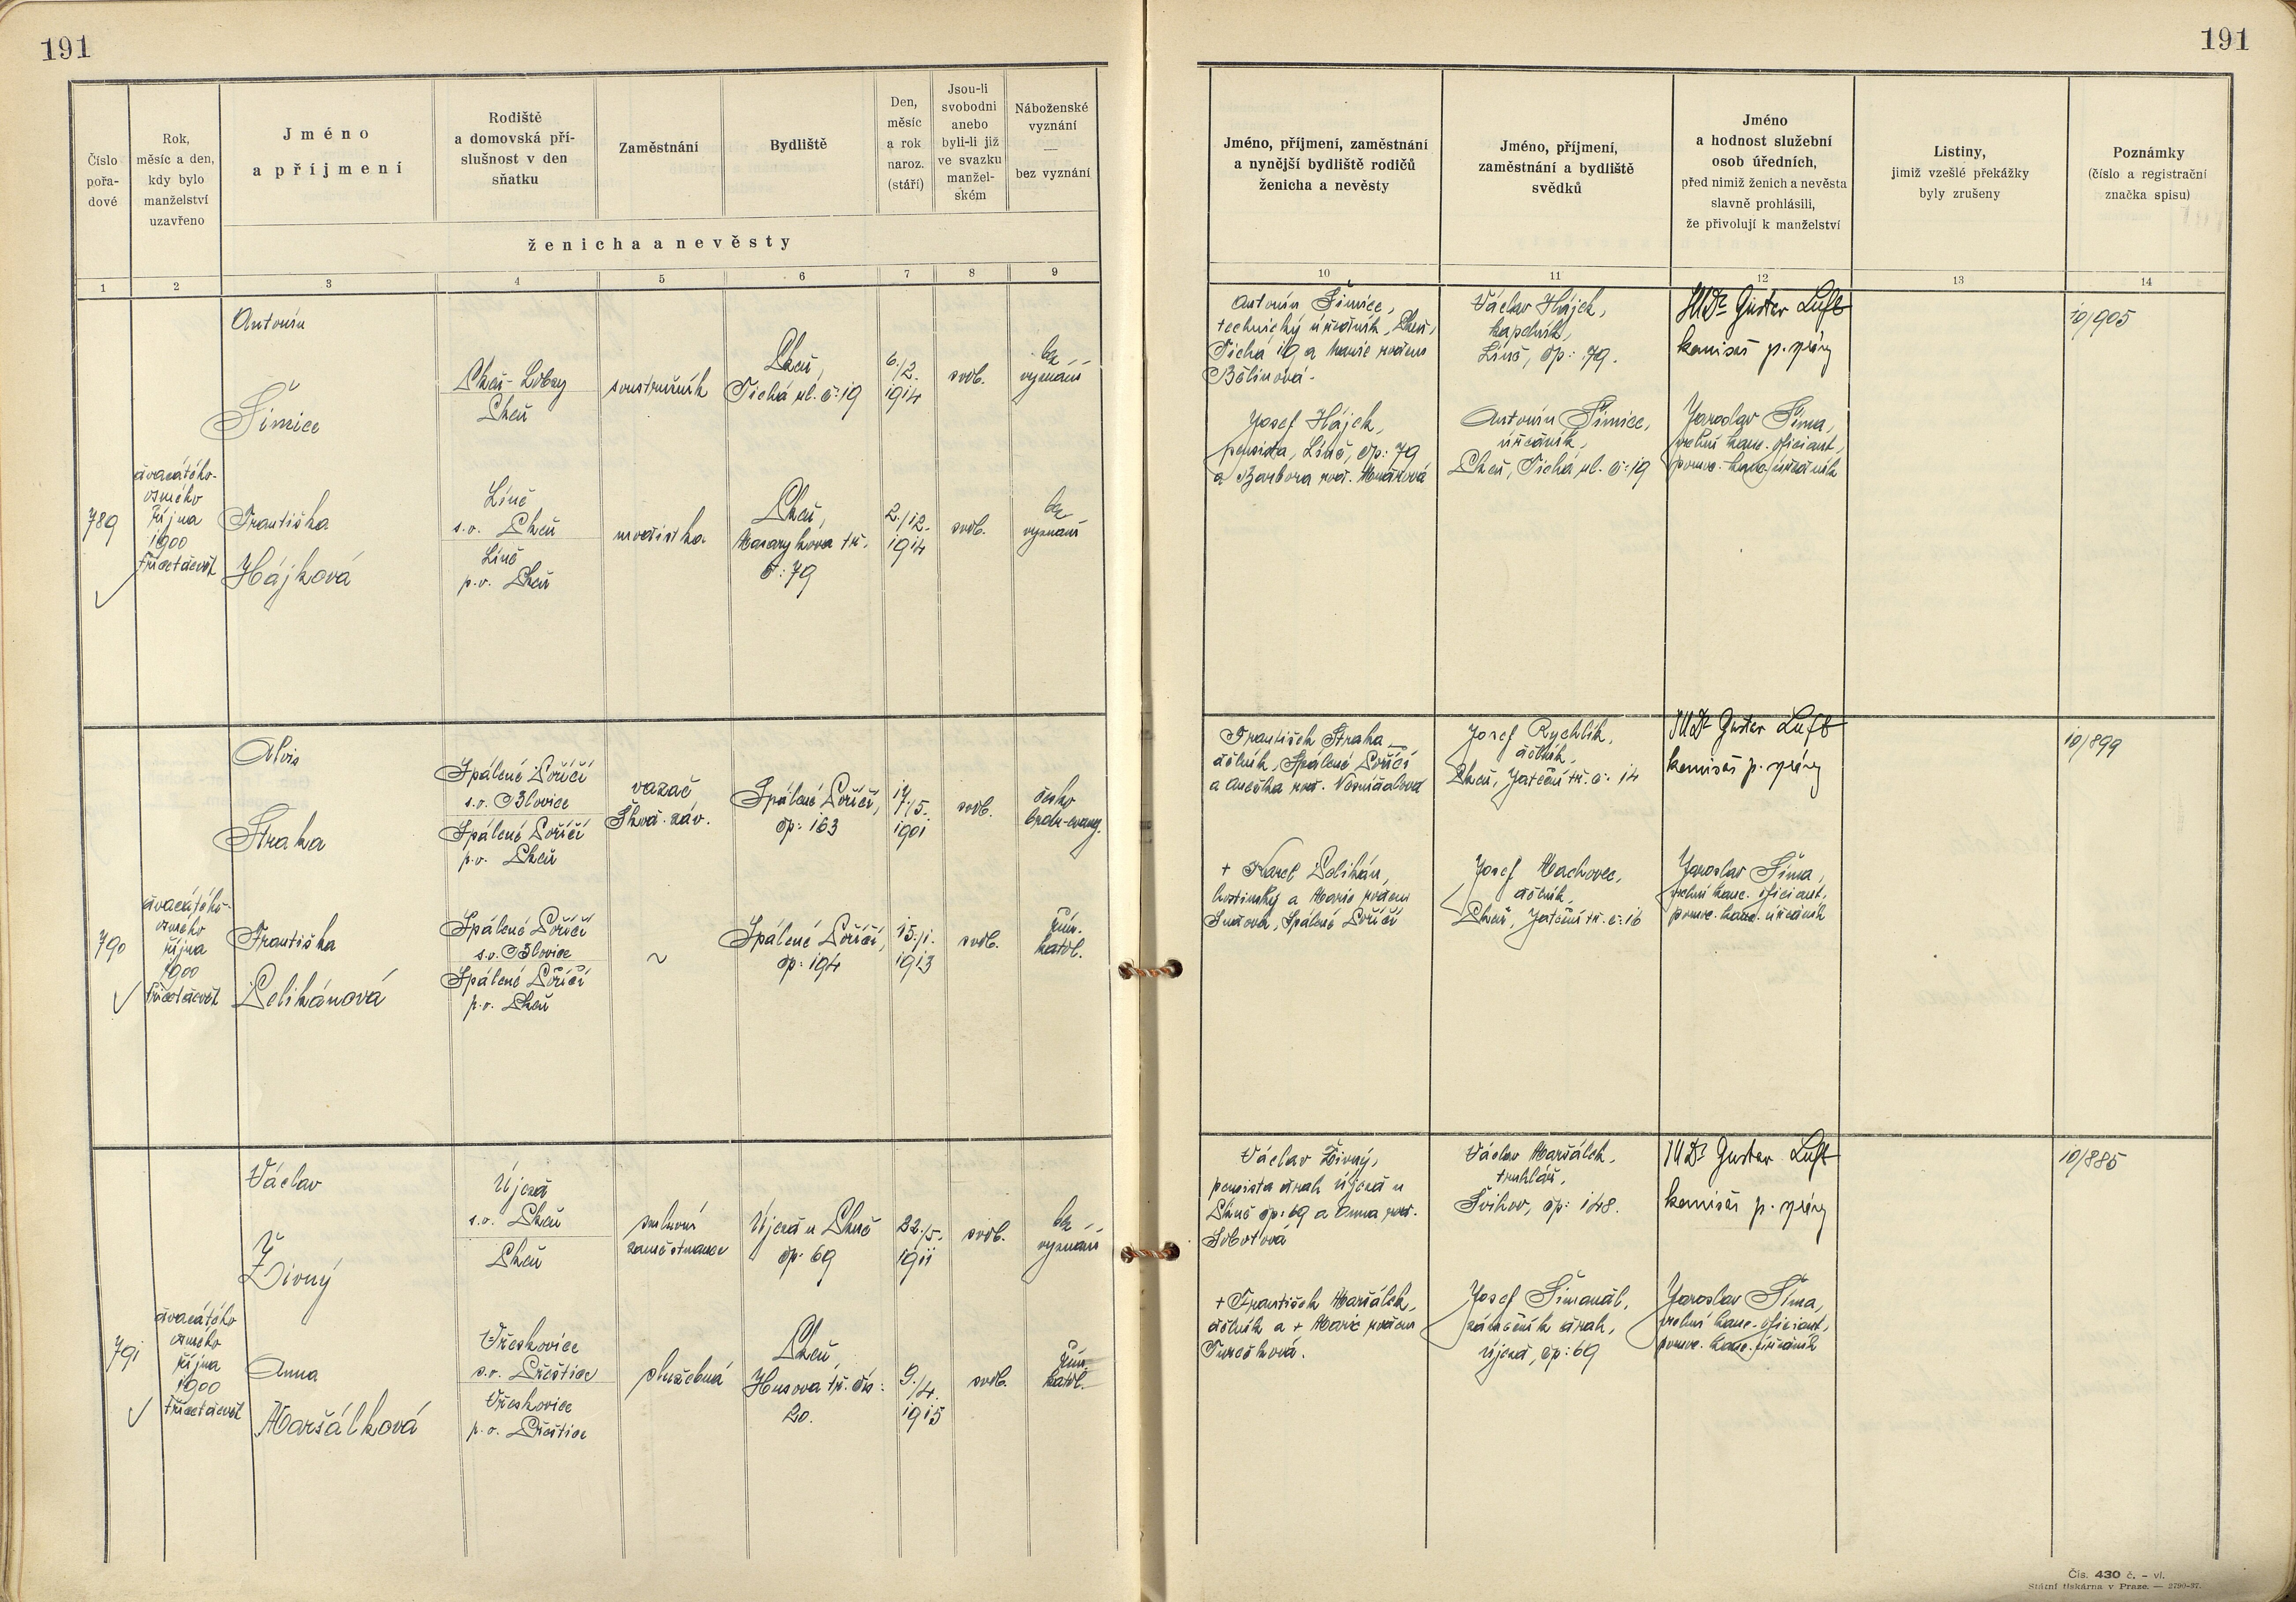 191
191
Číslo
pořa-
dové
Rok,
měsíc a den,
kdy bylo
manželství
uzavřeno
Jméno
a příjmení
Rodiště
a domovská pří-
slušnost v den
sňatku
Zaměstnání
Bydliště
Den,
měsíc
a rok
naroz.
(stáří)
Jsou-li
svobodni
anebo
byli-li již
ve svazku
manžel-
ském
Náboženské
vyznání
—
bez vyznání
ženicha a nevěsty
1 2 3 4 5 6 7 8 9
Jméno, příjmení, zaměstnání
a nynější bydliště rodičů
ženicha a nevěsty
Jméno, příjmení,
zaměstnání a bydliště
svědků
Jméno
a hodnost služební
osob úředních,
před nimiž ženich a nevěsta
slavně prohlásili,
že přivolují k manželství
Listiny,
jimiž vzešlé překážky
byly zrušeny
Poznámky
(číslo a registrační
značka spisu)
10 11 12 13 14
789
dvacátého-
osmého
října
1900
třicetdevět
Antonín
Šimice
Plzeň-Lobzy
Plzeň
soustružník
Plzeň,
Tichá ul. č: 19
6./2.
1914
svob.
bez
vyznání
Františka
Hájková
Líně
s.o. Plzeň
Líně
p.o. Plzeň
modistka
Plzeň,
Masarykova tř.
č: 79
2./12.
1914
svob.
bez
vyznání
Antonín Šimice,
technický úředník, Plzeň,
Tichá 19 a Marie rozená
Bělinová.
Josef Hájek,
pensista, Líně, čp: 79
a Barbora roz.
Václav Hájek,
kapelník,
Líně, čp: 79.
Antonín Šimice,
úředník,
Plzeň, Tichá ul. č: 19
JUDr Gustav Luft
komisař p. správy
Jaroslav Šíma,
vrchní kanc. oficiant,
pomoc. kanc. úředník
10/905
790
dvacátého-
osmého
října
1900
třicetdevět
Alois
Straka
Spálené Poříčí
s.o. Blovice
Spálené Poříčí
p.o. Plzeň
vazač
Škod. záv.
Spálené Poříčí,
čp: 163
17./5.
1901
svob.
česko
bratr-evang.
Františka
Pelikánová
Spálené Poříčí
s.o. Blovice
Spálené Poříčí
p.o. Plzeň
~
Spálené Poříčí,
čp: 194
15./1.
1913
svob.
řím.
katol.
František Straka
dělník, Spálené Poříčí
a Anežka roz.
+ Karel Pelikán,
hostinský a Marie rozená
Spálené Poříčí
Josef Rychlík,
dělník,
Plzeň, Jateční tř. č: 14
Josef Machovec,
dělník,
Plzeň, Jateční tř. č: 16
JUDr Gustav Luft
komisař p. správy
Jaroslav Šíma,
vrchní kanc. oficiant,
pomoc. kanc. úředník
10/899
791
dvacátého
osmého
října
1900
třicetdevět
Václav
Živný
Újezd
s.o. Plzeň
Plzeň
smluvní
zaměstnanec
Újezd u Plzně
čp: 69
22./5.
1911
svob.
bez
vyznání
Anna
Maršálková
Vřeskovice
s.o. Přeštice
Vřeskovice
p.o. Přeštice
služebná
Plzeň,
Husova tř. čís:
20.
9./4.
1915
svob.
řím.
katol.
Václav Živný,
pensista drah Újezd u
Plzně čp: 69 a Anna roz.
Sobotová
+ František Maršálek,
dělník a + Marie rozená
Turečková.
Václav Maršálek,
truhlář,
Švihov, čp: 148.
Josef Šimandl,
zámečník drah,
Újezd, čp: 69
JUDr Gustav Luft
komisař p. správy
Jaroslav Šíma,
vrchní kanc. oficiant,
pomoc. kanc. úředník
10/885
Čís. 430 č. - vl.
Státní tiskárna v Praze. — 2790-37.